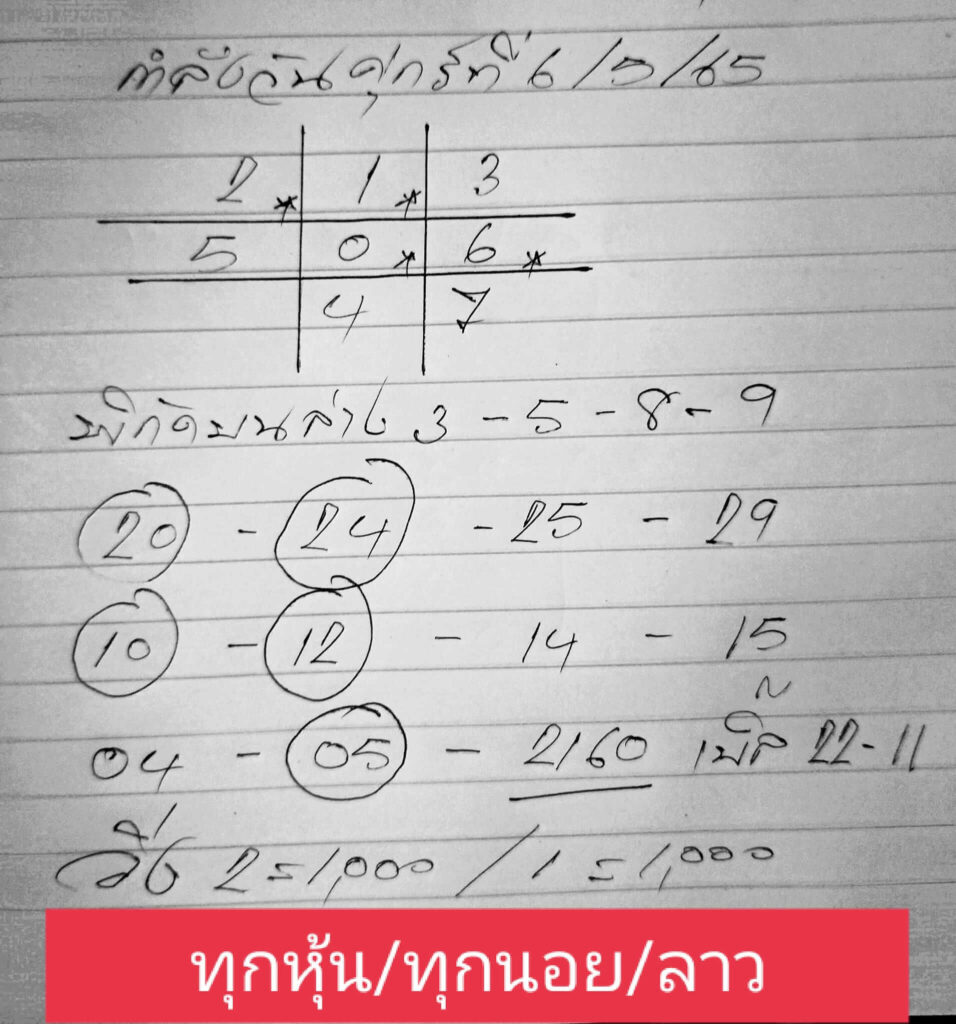 กำลังวันศุกร์ที่ 6/5/65
2* 1* 3
5 0* 6*
4 7
พิกัดบนล่าง 3-5-8-9
20 - 24 - 25 - 29
10 - 12 - 14 - 15
04 - 05 - 2160 เบิ้ล 22-11
วิ่ง 2=1,000 / 1=1,000
ทุกหุ้น/ทุกนอย/ลาว